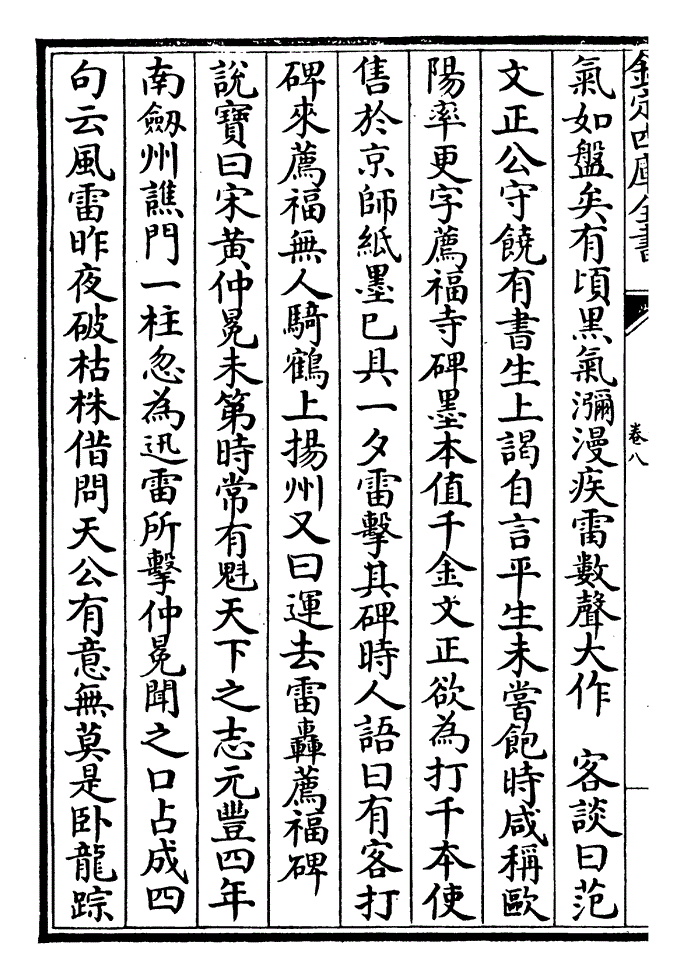 欽定四庫全書
卷八
氣如盤矣有頃黒氣瀰漫疾雷數聲大作　客談曰范
文正公守饒有書生上謁自言平生未嘗飽時咸稱歐
陽率更字薦福寺碑墨本值千金文正欲為打千本使
售於京師紙墨已具一夕雷擊其碑時人語曰有客打
碑來薦福無人騎鶴上揚州又曰運去雷轟薦福碑
說寶曰宋黄仲冕未第時常有魁天下之志元豐四年
南劔州譙門一柱忽為迅雷所擊仲冕聞之口占成四
句云風雷昨夜破枯株借問天公有意無莫是卧龍踪